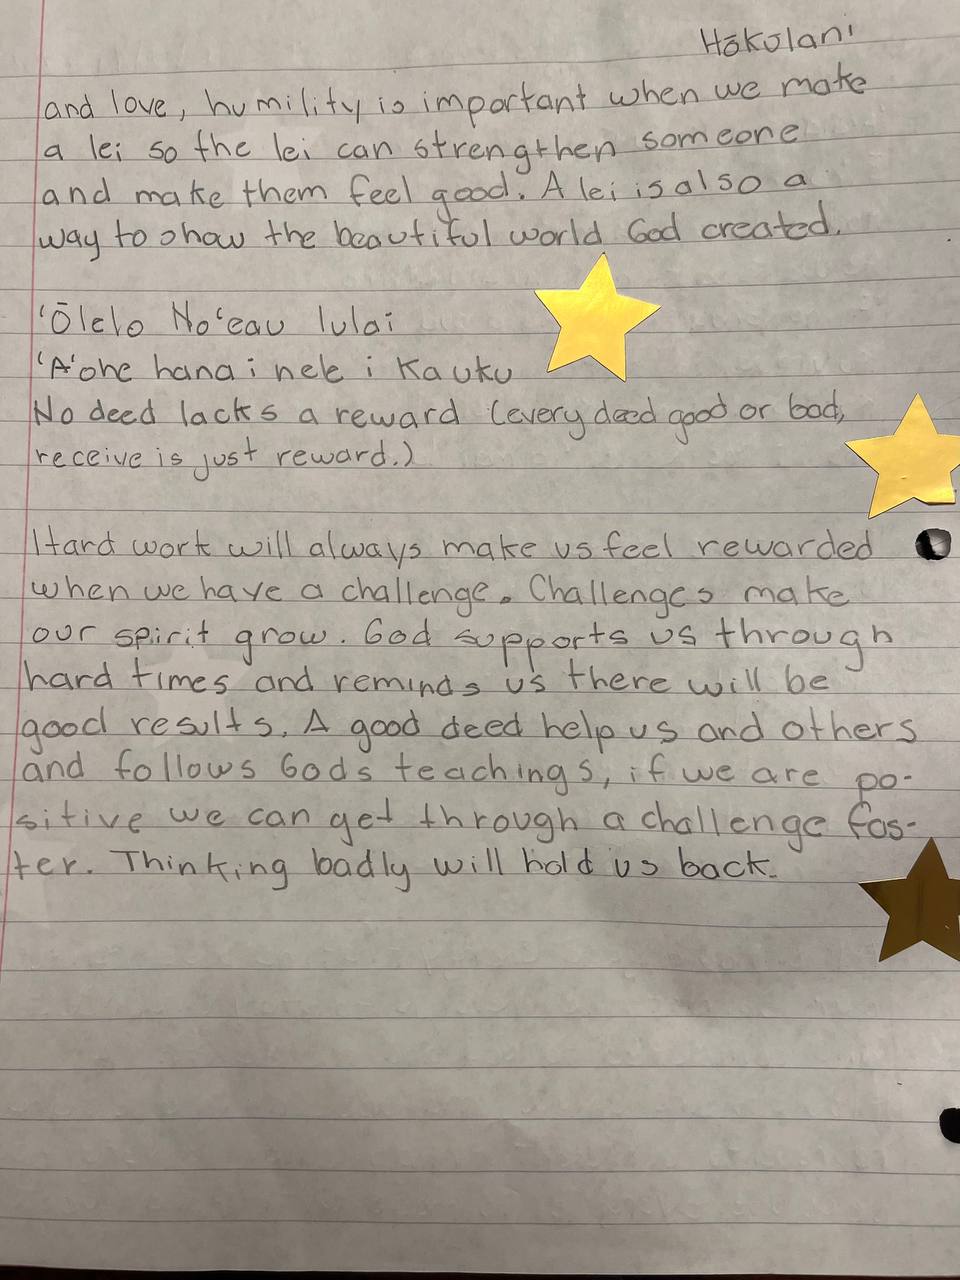 Hōkūlani
and love, humility is important when we make
a lei so the lei can strengthen someone
and make them feel good. A lei is also a
way to show the beautiful world God created.
ʻŌlelo Noʻeau Iulai
ʻAʻohe hana i nele i Ka uku
No deed lacks a reward (every deed good or bad,
receive is just reward.)
Hard work will always make us feel rewarded
when we have a challenge. Challenges make
our spirit grow. God supports us through
hard times and reminds us there will be
good results. A good deed help us and others
and follows Gods teachings, if we are po-
sitive we can get through a challenge fas-
ter. Thinking badly will hold us back.